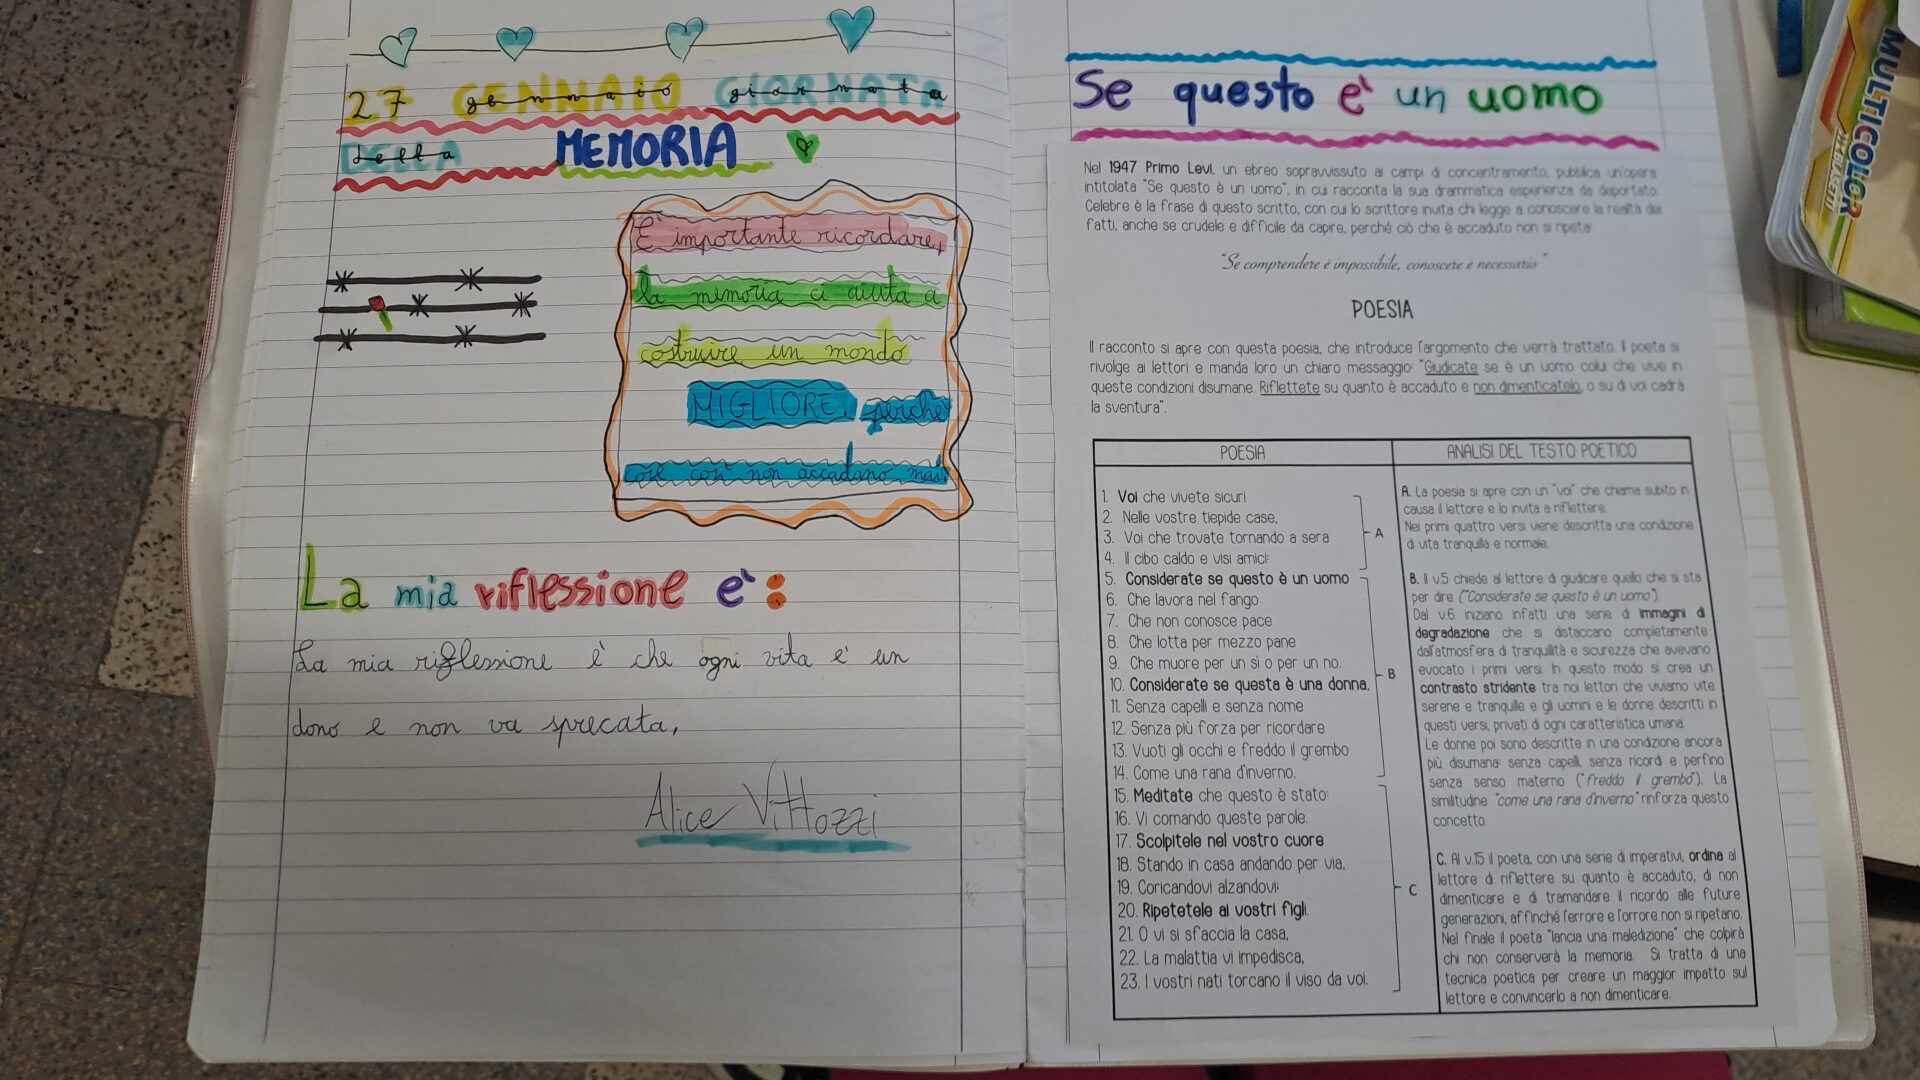 27 GENNAIO GIORNATA
DELLA MEMORIA
È importante ricordare,
la memoria ci aiuta a
costruire un mondo
MIGLIORE, perché
cose così non accadano mai
La mia riflessione e':
La mia riflessione è che ogni vita e' un
dono e non va sprecata.
Alice Vittozzi
Se questo e' un uomo
Nel 1947 Primo Levi, un ebreo sopravvissuto ai campi di concentramento, pubblica un'opera
intitolata "Se questo è un uomo", in cui racconta la sua drammatica esperienza da deportato.
Celebre è la frase di questo scritto, con cui lo scrittore invita chi legge a conoscere la realtà dei
fatti, anche se crudele e difficile da capire, perché ciò che è accaduto non si ripeta:
"Se comprendere è impossibile, conoscere è necessario"
POESIA
Il racconto si apre con questa poesia, che introduce l'argomento che verrà trattato. Il poeta si
rivolge ai lettori e manda loro un chiaro messaggio: "Giudicate se è un uomo colui che vive in
queste condizioni disumane. Riflettete su quanto è accaduto e non dimenticatelo, o su di voi cadrà
la sventura".
POESIA
1. Voi che vivete sicuri
2. Nelle vostre tiepide case,
3. Voi che trovate tornando a sera
4. Il cibo caldo e visi amici:
A
5. Considerate se questo è un uomo
6. Che lavora nel fango
7. Che non conosce pace
8. Che lotta per mezzo pane
9. Che muore per un sì o per un no.
10. Considerate se questa è una donna,
11. Senza capelli e senza nome
12. Senza più forza per ricordare
13. Vuoti gli occhi e freddo il grembo
14. Come una rana d'inverno.
B
15. Meditate che questo è stato:
16. Vi comando queste parole.
17. Scolpitele nel vostro cuore
18. Stando in casa andando per via,
19. Coricandovi alzandovi:
20. Ripetetele ai vostri figli.
21. O vi si sfaccia la casa,
22. La malattia vi impedisca,
23. I vostri nati torcano il viso da voi.
C
ANALISI DEL TESTO POETICO
A. La poesia si apre con un "voi" che chiama subito in
causa il lettore e lo invita a riflettere.
Nei primi quattro versi viene descritta una condizione
di vita tranquilla e normale.
B. Il v.5 chiede al lettore di giudicare quello che si sta
per dire ("Considerate se questo è un uomo").
Dal v.6 iniziano infatti una serie di immagini di
degradazione che si distaccano completamente
dall'atmosfera di tranquillità e sicurezza che avevano
evocato i primi versi. In questo modo si crea un
contrasto stridente tra noi lettori che viviamo vite
serene e tranquille e gli uomini e le donne descritti in
questi versi, privati di ogni caratteristica umana.
Le donne poi sono descritte in una condizione ancora
più disumana: senza capelli, senza ricordi e perfino
senza senso materno ("freddo il grembo"). La
similitudine "come una rana d'inverno" rinforza questo
concetto.
C. Al v.15 il poeta, con una serie di imperativi, ordina al
lettore di riflettere su quanto è accaduto, di non
dimenticare e di tramandare il ricordo alle future
generazioni, affinché l'errore e l'orrore non si ripetano.
Nel finale il poeta "lancia una maledizione" che colpirà
chi non conserverà la memoria. Si tratta di una
tecnica poetica per creare un maggior impatto sul
lettore e convincerlo a non dimenticare.
MULTICOLOR